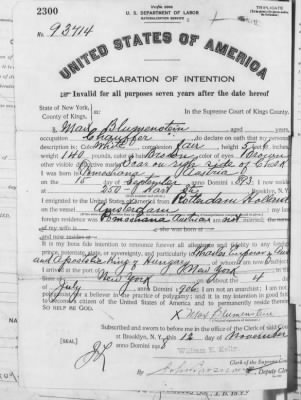 2300
U. S. DEPARTMENT OF LABOR
NATURALIZATION SERVICE
TRIPLICATE
No. 93714
UNITED STATES OF AMERICA
DECLARATION OF INTENTION
Invalid for all purposes seven years after the date hereof
State of New York,
County of Kings.
In the Supreme Court of Kings County.
I, Max Blumenstein, aged years,
occupation Chauffer, do declare on oath that my personal
description is: Color White, complexion fair, height 5 feet
weight 140 pounds, color of hair Brown, color of eyes Brown
other visible distinctive marks Scar on right side of Cheek
I was born in Austria
on the 15 day of September, anno Domini 1893; I now
reside at 250 St., Brooklyn, N.Y.
I emigrated to the United States of America from Rotterdam Holland
on the vessel Amsterdam; my last
foreign residence was Austria not married; the name
of my wife is
now resides at
It is my bona fide intention to renounce forever all allegiance and fidelity to any foreign
prince, potentate, state, or sovereignty, and particularly to Charles Emperor of Austria
and Apostolic King of Hungary, of whom I am now a subject;
I arrived at the port of New York, in the
State of New York, on or about the 4 day
of July, anno Domini 1906; I am not an anarchist; I am not a
polygamist nor a believer in the practice of polygamy; and it is my intention in good faith
to become a citizen of the United States of America and to permanently reside therein:
SO HELP ME GOD.
X Max Blumenstein
Subscribed and sworn to before me in the office of the Clerk of said Court
at Brooklyn, N. Y., this 12 day of November
[SEAL] anno Domini 191
Clerk of the Supreme
Deputy Clerk